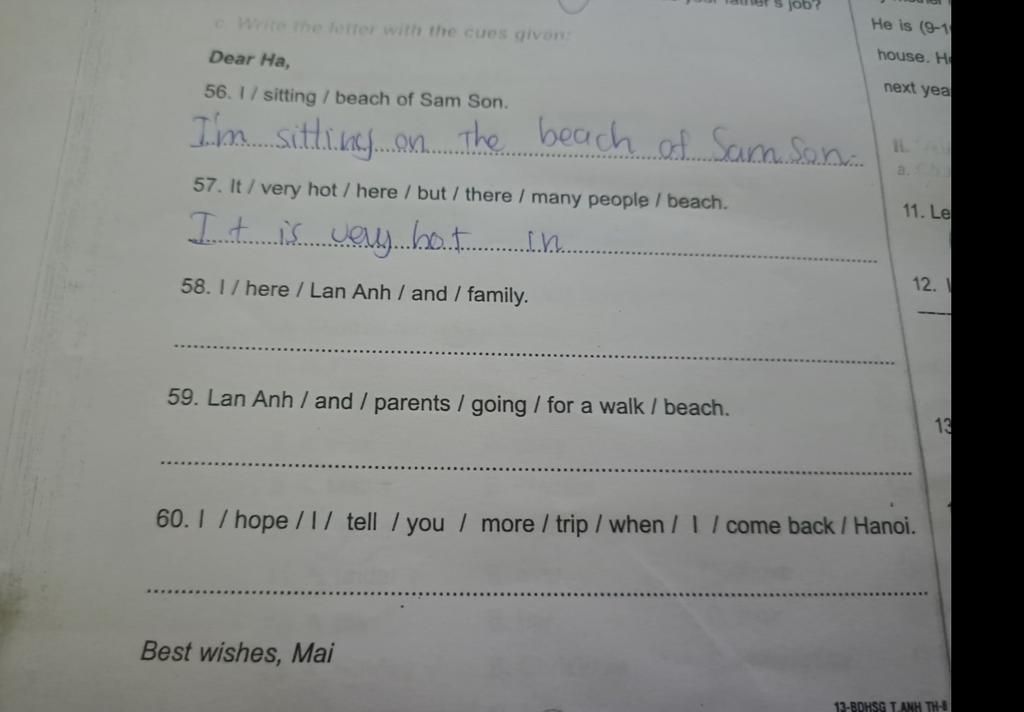 father's job?
c. Write the letter with the cues given:
Dear Ha,
56. I / sitting / beach of Sam Son.
I'm sitting on the beach of Sam Son.
57. It / very hot / here / but / there / many people / beach.
It is very hot in
58. I / here / Lan Anh / and / family.
59. Lan Anh / and / parents / going / for a walk / beach.
60. I / hope / I / tell / you / more / trip / when / I / come back / Hanoi.
Best wishes, Mai
13-BDHSG T.ANH TH-8
He is (9-1
house. H
next yea
II.
a.
11. Le
12.
13